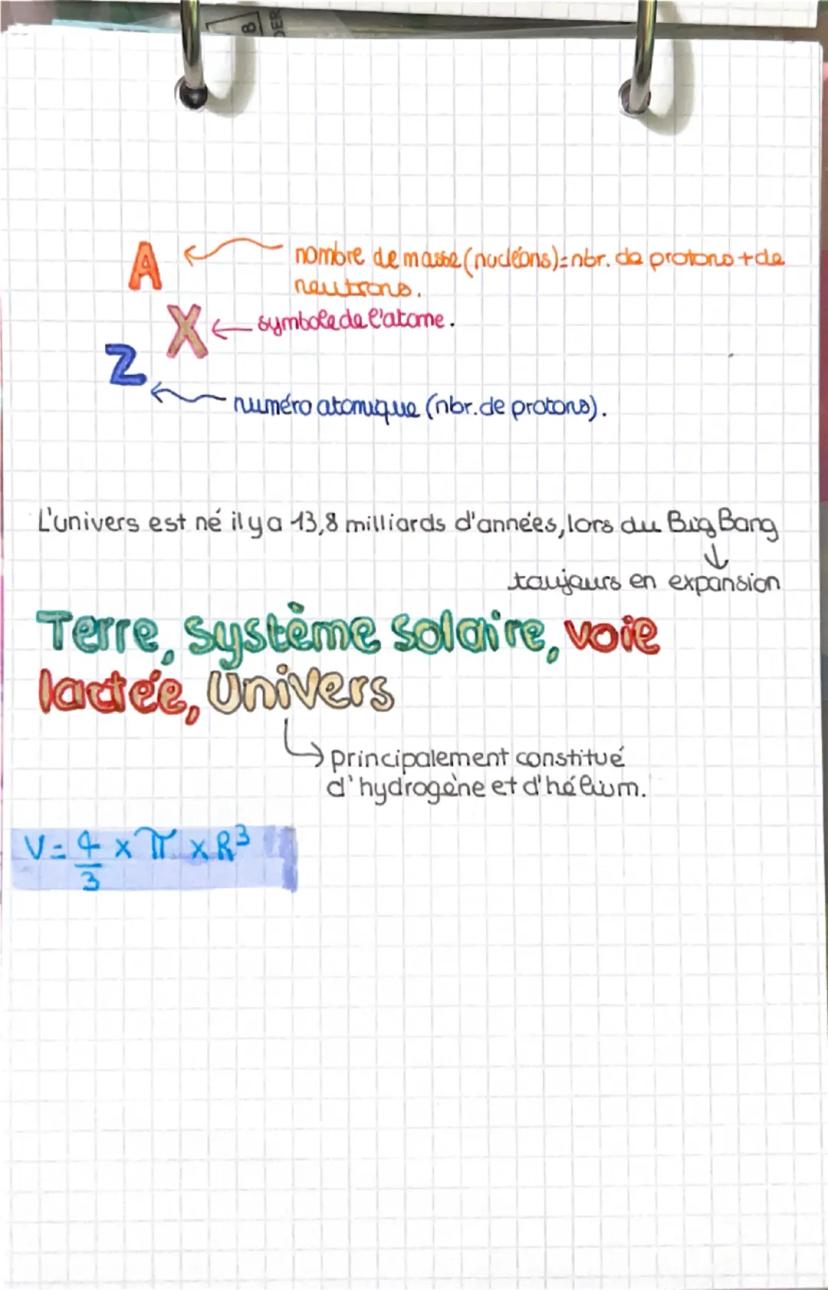 B
DER
A
nombre de masse (nucléons)=nbr. de protons + de
neutrons.
X
symbole de l'atome.
Z
numéro atomique (nbr. de protons).
L'univers est né il y a 13,8 milliards d'années, lors du Big Bang
toujours en expansion
Terre, système solaire, voie
lactée, Univers
principalement constitué
d'hydrogène et d'hélium.
V = 4/3 x π x R³